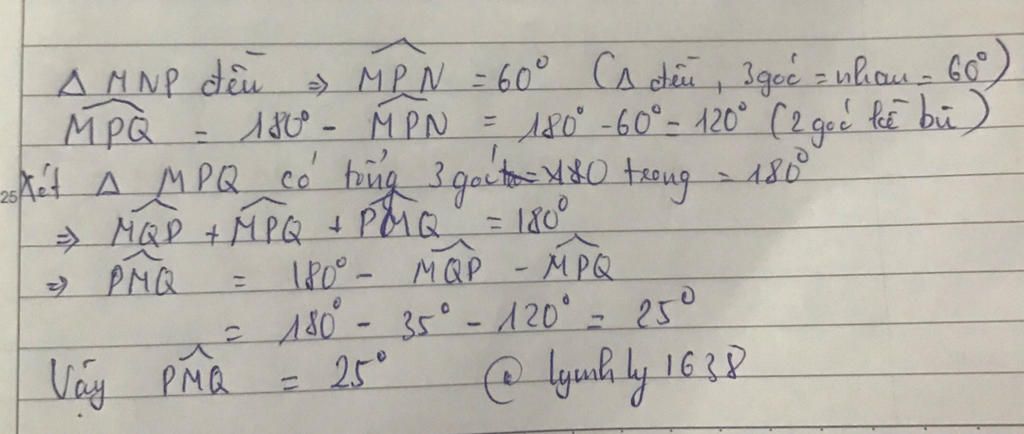 Δ MNP đều ⇒ MPN = 60° (Δ đều, 3 góc = nhau = 60°)
MPQ = 180° - MPN = 180° - 60° = 120° (2 góc kề bù)
25 Xét Δ MPQ có tổng 3 góc trong = 180°
⇒ MQP + MPQ + PMQ = 180°
⇒ PMQ = 180° - MQP - MPQ
= 180° - 35° - 120° = 25°
Vậy PMQ = 25° @ lymhly1638